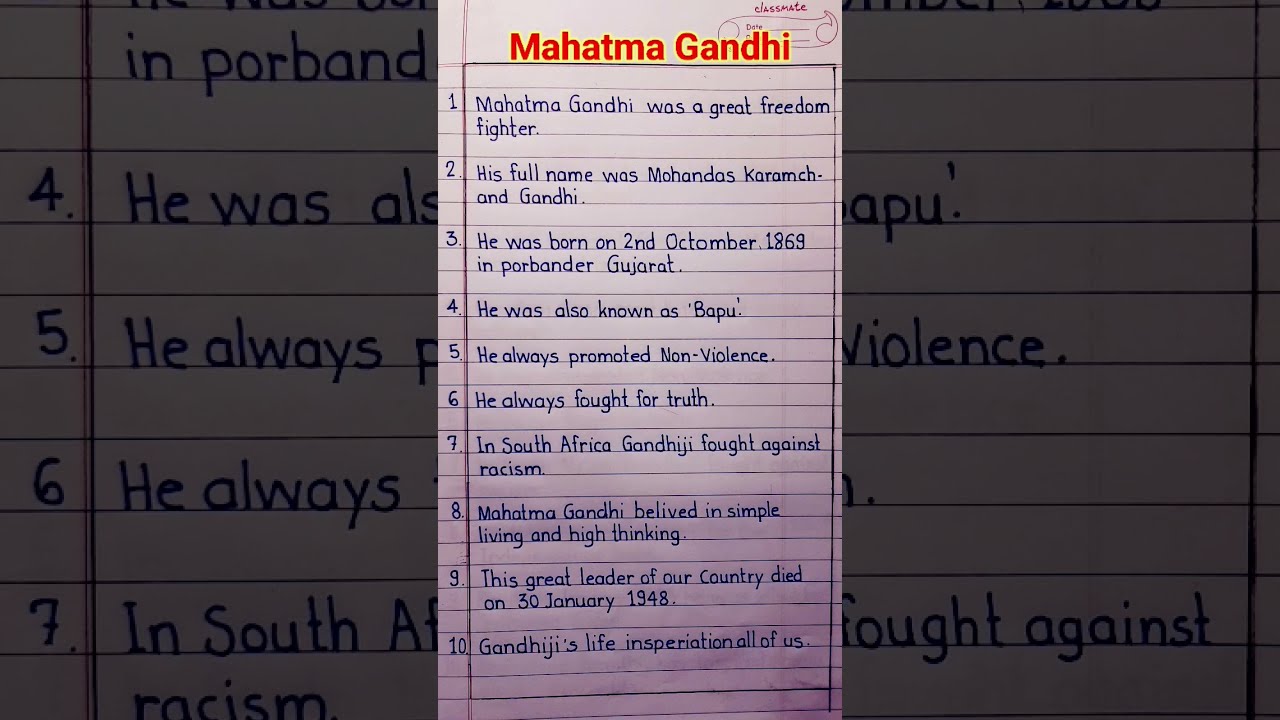 classmate
Date
Mahatma Gandhi
1 Mahatma Gandhi was a great freedom
fighter.
2. His full name was Mohandas Karamch-
and Gandhi.
3. He was born on 2nd Octomber, 1869
in porbander Gujarat.
4. He was also known as 'Bapu'.
5. He always promoted Non-Violence.
6 He always fought for truth.
7. In South Africa Gandhiji fought against
racism.
8. Mahatma Gandhi belived in simple
living and high thinking.
9. This great leader of our Country died
on 30 January 1948.
10 Gandhiji's life insperiation all of us.